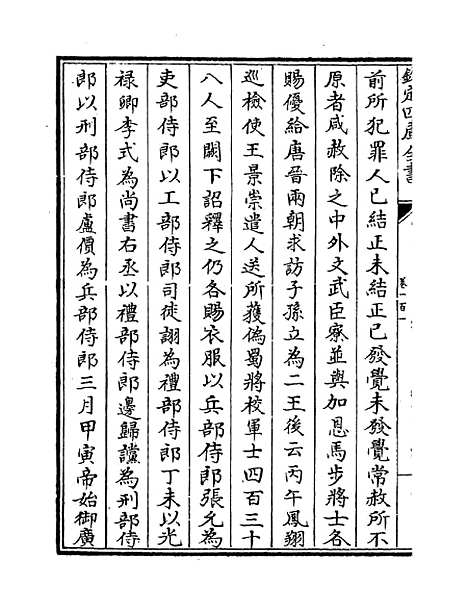 欽定四庫全書
卷一百一
前所犯罪人已結正未結正已發覺未發覺常赦所不
原者咸赦除之中外文武臣寮並與加恩馬步將士各
賜優給唐晉兩朝求訪子孫立為二王後云丙午鳳翔
巡檢使王景崇遣人送所獲偽蜀將校軍士四百三十
八人至闕下詔釋之仍各賜衣服以兵部侍郎張允為
吏部侍郎以工部侍郎司徒詡為禮部侍郎丁未以光
祿卿李式為尚書右丞以禮部侍郎邊歸讜為刑部侍
郎以刑部侍郎盧價為兵部侍郎三月甲寅帝始御廣